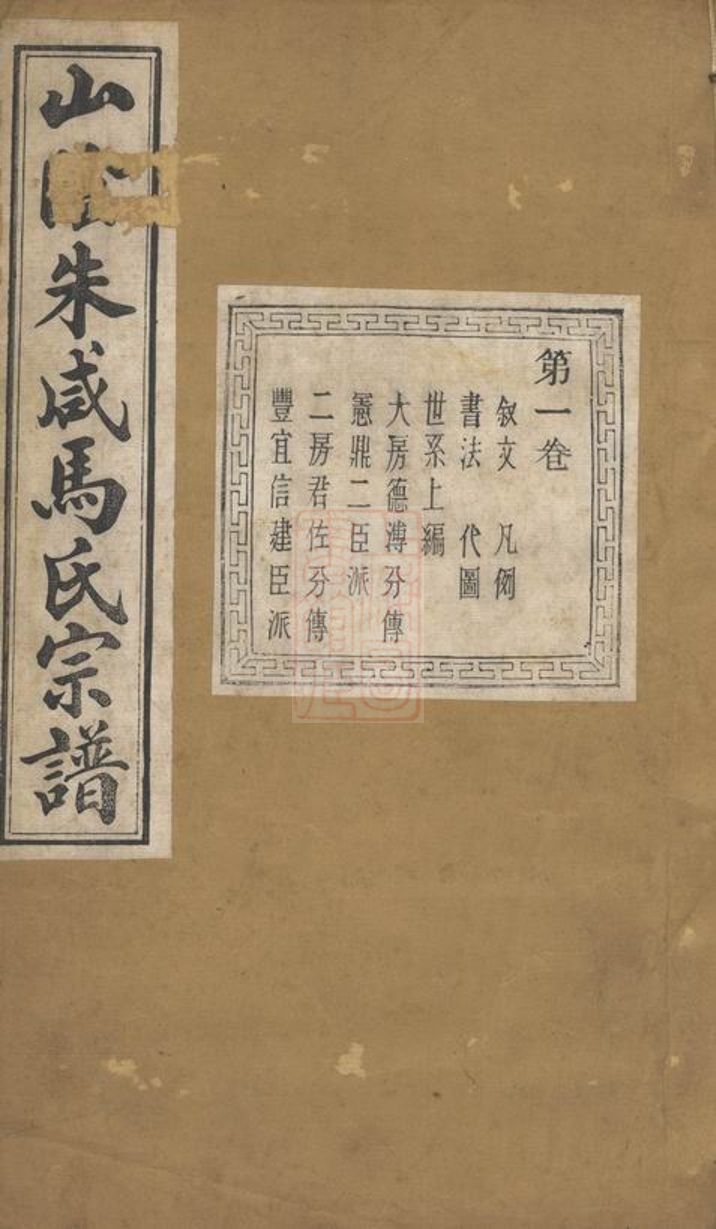 山陰朱咸馬氏宗譜
第一卷
敘文 凡例
書法 代圖
世系上編
大房德溥分傳
憲鼎二臣派
二房君佐分傳
豐宜信建臣派